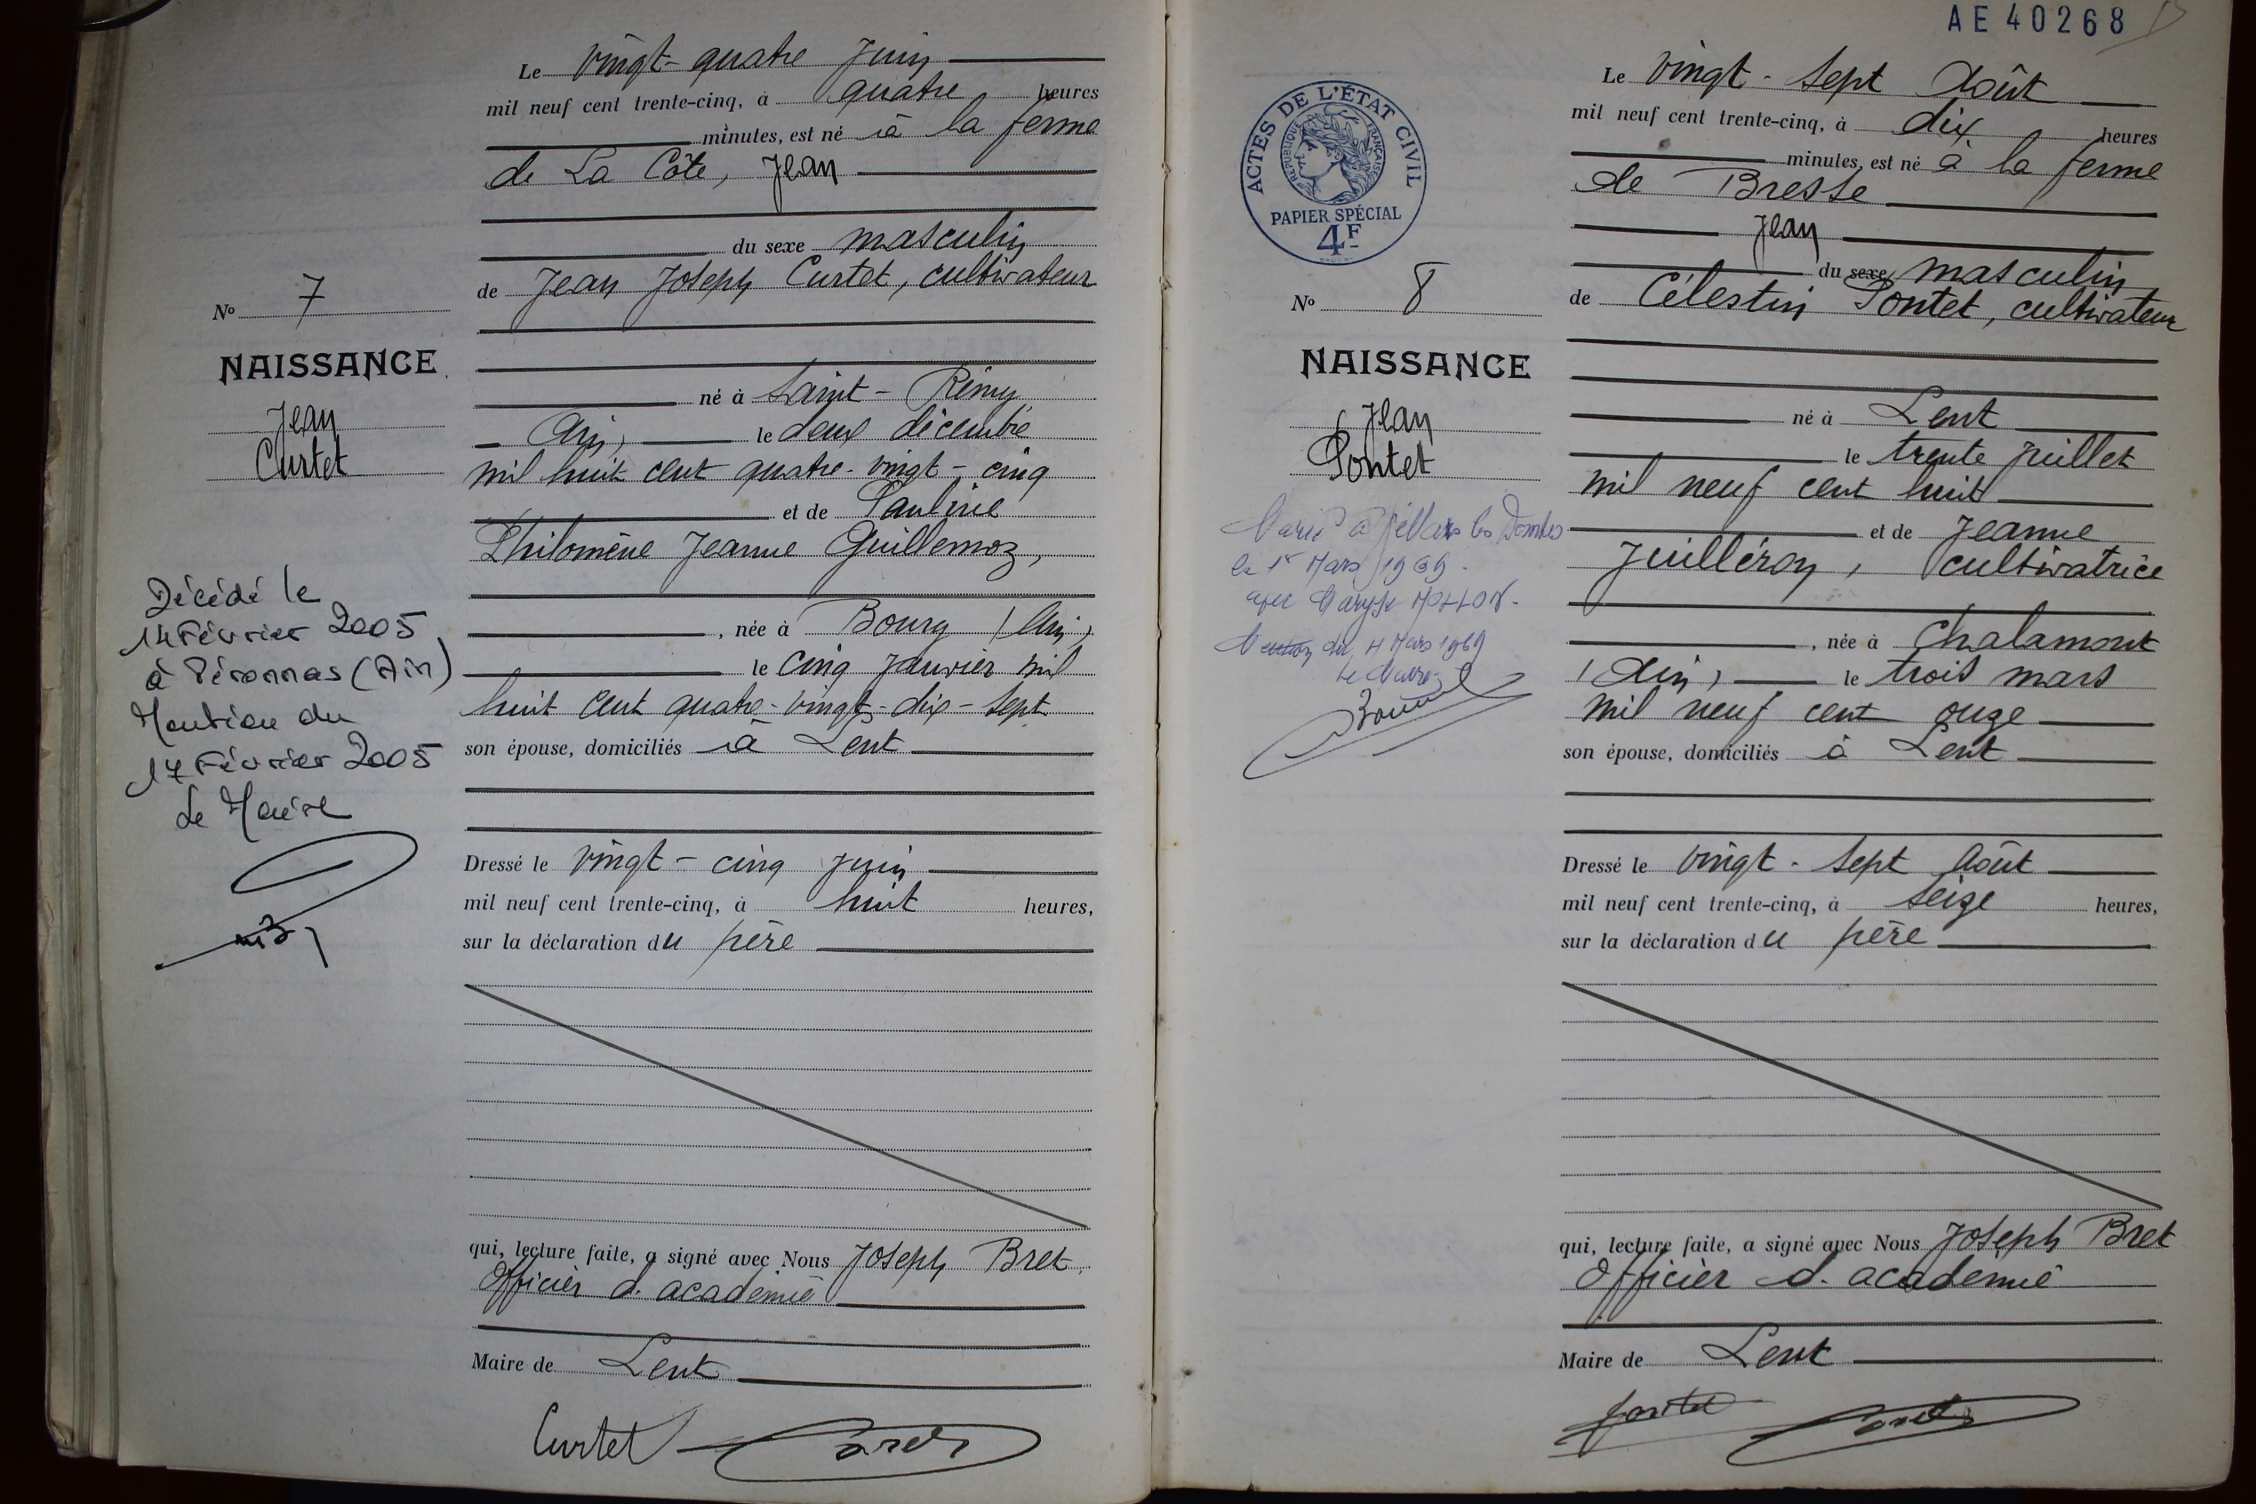 Le vingt-quatre Juin
mil neuf cent trente-cinq, à quatre heures
minutes, est né à la ferme
de La Côte, Jean
du sexe masculin
de Jean Joseph Curtet, cultivateur
né à Saint-Rémy
Ain, le deux décembre
mil huit cent quatre-vingt-cinq
et de Pauline
Philomène Jeanne Guillemoz,
, née à Bourg (Ain)
le cinq janvier mil
huit cent quatre-vingt-dix-sept
son épouse, domiciliés à Lent
Dressé le vingt-cinq juin
mil neuf cent trente-cinq, à huit heures,
sur la déclaration du père
qui, lecture faite, a signé avec Nous Joseph Bret,
Officier d'académie
Maire de Lent
Curtet Bret
No 7
NAISSANCE
Jean
Curtet
Décédé le
14 Février 2005
à Péronnas (Ain)
Mention du
17 Février 2005
Le Maire
AE 40268
ACTES DE L'ÉTAT CIVIL
RÉPUBLIQUE FRANÇAISE
PAPIER SPÉCIAL
4F
No 8
NAISSANCE
Jean
Pontet
Marié à Villars les Dombes
le 1er Mars 1969.
avec Maryse
Mention du 4 Mars 1969
Le vingt-sept Août
mil neuf cent trente-cinq, à dix heures
minutes, est né à la ferme
de Bresse
Jean
du sexe masculin
de Célestin Pontet, cultivateur
né à Lent
le trente juillet
mil neuf cent huit
et de Jeanne
Juilléron, cultivatrice
, née à Chalamont
(Ain) le trois mars
mil neuf cent onze
son épouse, domiciliés à Lent
Dressé le vingt-sept Août
mil neuf cent trente-cinq, à seize heures,
sur la déclaration du père
qui, lecture faite, a signé avec Nous Joseph Bret
Officier d'académie
Maire de Lent
Pontet Bret